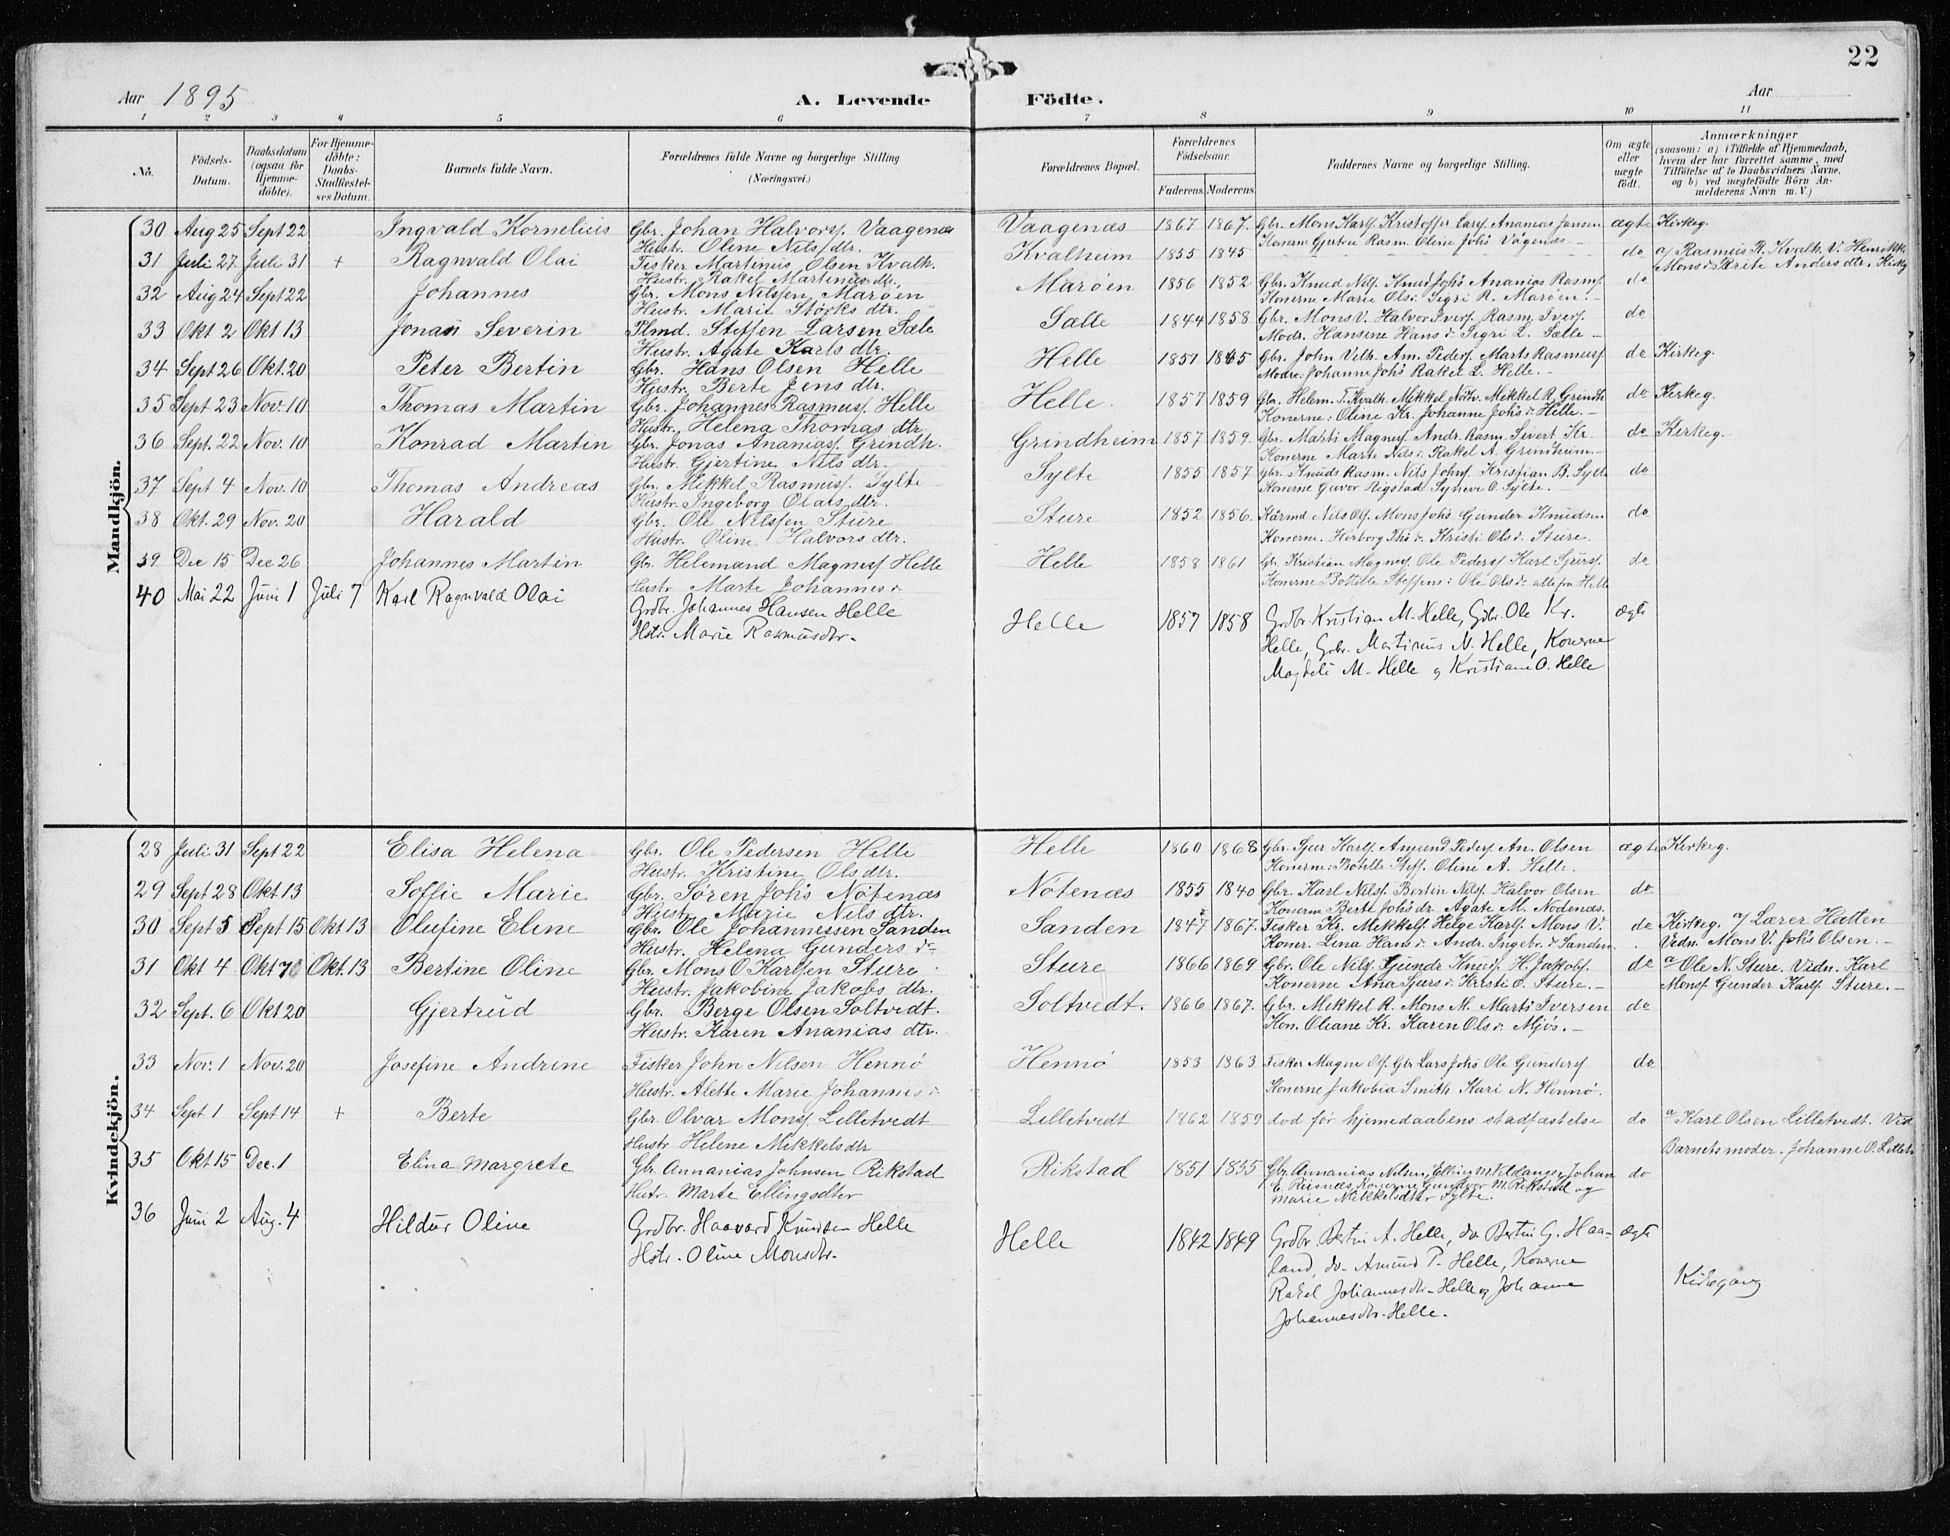 22
Aar 1895 A. Levende Födte. Aar
1 2 3 4 5 6 7 8 9 10 11
No. Födsels-Datum. Daabsdatum (ogsaa for Hjemme-döbte). For Hjemme-döbte: Daabs-Stadfæstel-ses Datum. Barnets fulde Navn. Forældrenes fulde Navne og borgerlige Stilling. (Næringsvei.) Forældrenes Bopæl. Forældrenes Födselsaar. Faderens. Moderens. Faddernes Navne og borgerlige Stilling. Om ægte eller uægte födt. Anmærkninger (saasom: a) i Tilfælde af Hjemmedaab, hvem der har forrettet samme, med Tilföielse af to Daabsvidners Navne, og b) ved uægtefödte Börn An-melderens Navn m. V.)
Mandkjön.
30 Aug 25 Sept 22 Ingvald Kornelius Gbr. Johan Halvors. Vaagenæs Vaagenæs 1867 1867. Gbr. Mons Karls. Kristoffer Lars. Ananias Jansen ægte Kirkeg.
Hustr. Oline Nils dtr. Konerne Gjertru Rasm. Oline Johs Vågenæs. –
31 Juli 27 Juli 31 + Ragnvald Olai Fisker Martinus Olsen Kvalh. Kvalheim 1855 1845 do a/ Rasmus R. Kvalh. V. Henrikke
Hustr. Rakel Martinus dtr. Mons d. Brite Anders dtr. Kirkeg
32 Aug 24 Sept 22 Johannes Gbr. Mons Nilssen Marøen Marøen 1856 1852 Gbr. Knud Nils. Knud Johs Ananias Rasms. do
Hustr. Marie Störks dtr. Konerne Marie Ols d. Sigri R. Marøen. –
33 Okt 2 Okt 13 Jonas Severin Plmd. Steffen Larsen Sæle Sælle 1844 1858 Gbr. Mons V. Halvor Ivers. Rasm. Ivers. do
Hustr. Agate Karls dtr. Modr. Hansine Hans d. Sigri L. Sælle –
34 Sept 26 Okt. 20 Peter Bertin Gbr. Hans Olsen Helle Helle 1851 1865 Gbr. John Vilh. Am. Peders. Marts Rasmuss. do Kirkeg.
Hustr. Berte Jens dtr. Modre. Johanne Johs Rakel L. Helle. –
35 Sept 23 Nov. 10 Thomas Martin Gbr. Johannes Rasmuss. Helle Helle. 1857 1859 Gbr. Helem. T. Kvalh. Mikkel Növ. Mikkel R. Grindh do Kirkeg.
Hustr. Helena Thomas dtr. Konerne: Oline Kr. Johanne Johs d. Helle. –
36 Sept. 22 Nov. 10 Konrad Martin Gbr. Jonas Ananiass. Grindh. Grindheim 1857 1859. Gbr. Marti Magnus. Andr. Rasm. Sivert Kr. do Kirkeg.
Hustr. Gjertine Nils dtr. Konerne Marte Nils d. Rakel A. Grindheim. –
37 Sept 4 Nov. 10 Thomas Andreas Gbr. Mekkel Rasmuss. Sylte Sylte 1855 1857 Gbr. Knud Rasm. Nils Johns. Kristian B. Sylte do
Hustr. Ingeborg Olais dtr. Konerne Guvor Rigstad Syneve O. Sylte. –
38 Okt. 29 Nov. 20 Harald Gbr. Ole Nilssen Sture Sture 1852 1856. Kårmd Nils Ols. Mons Johs Gunder Knudsen do
Hustr. Oline Halvors dtr. Konerne. Herborg Ths d. Kristi Ols d. Sture.
39 Dec 15 Dec 26 Johannes Martin Gbr. Helemand Magnus. Helle Helle 1858 1861 Gbr. Kristian Magnus. Ole Peders. Karl Sjurs. do
Hustr Marte Johannes d. Konerne Botille Steffens d. Ole Ols dr alle fra Helle
40 Mai 22 Juni 1 Juli 7 Karl Ragnvald Olai Grdbr. Johannes Hansen Helle Helle 1857 1858 Grdbr. Kristian M. Helle, Gdbr. Ole Kr. ægte
Hstr. Marie Rasmusdtr. Helle, Grbr. Martinus N. Helle, Konerne
Magdeli M. Helle og Kristiane O. Helle
Kvindekjön.
28 Juli 31 Sept 22 Elisa Helena Gbr. Ole Pedersen Helle Helle 1860 1868 Gbr. Sjur Karls. Amund Peders. An. Olsen ægte Kirkeg.
Hustr. Kristine Ols dtr. Konerne: Botille Stefs. Oline A. Helle.
29 Sept 28 Okt. 13 Soffie Marie Gbr. Søren Johs Nötenæs Nötenæs 1855 1840 Gbr. Karl Nils. Bertin Nils. Halvor Olsen do
Hustr. Marie Nils dtr. Konerne Berte Johs dr. Agate M. Nodenæs.
30 Sept 5 Sept 15 Okt 13 Olufine Eline Gbr. Ole Johannessen Sanden Sanden 1847 1867. Fisker Kr. Mekkels. Helge Karls. Mons V. do Kirkeg. a/ Lærer Hatten
Hustr. Helena Gunders dr Koner. Lina Hans d. Andr. Ingebr. d. Sanden. Vedn. Mons V. Johs Olsen. –
31 Okt 4 Okt Okt. 13 Bertine Oline Gbr. Mons O Karlssen Sture Sture 1866 1869 Gbr. Ole Nils. Gundr Knuds. H. Jakobs. do a/ Ole N. Sture. Vidn. Karl
Hustr. Jakobine Jakobs dtr. Konerne Ana Sjurs d. Kristi O. Sture. – Mons. Gunder Karls. Sture. –
32 Sept. 6 Okt 20 Gjertrud Gbr. Berge Olsen Soltvedt. Soltvedt. 1866 1867. Gbr. Mekkel R. Mons M. Marti Iversen do
Hustr. Karen Ananias dtr. Kon. Oliane Kr. Karen Ols d. Mjös. –
33 Nov. 1 Nov. 20 Josefine Andrine Fisker John Nilsen Hennö Hennö 1853 1863 Fisker Magne Ols. Gbr Lars Johs Ole Gunders do
Hustr. Alette Marie Johannes d. Konerne Jakobia Smith Kari N. Hennö.
34 Sept 1 Sept 14 + Berte Gbr. Olvar Mons. Lilletvedt Lilletvedt 1862 1859 död før hjemedaabens stadfæstelse do a/ Karl Olsen Lilletvedt. Vid
Hustr. Helene Mekkelsdtr Barnets moder. Johanne O. Lilletv
35 Okt 15 Dec. 1 Elina Margrete Gbr. Annanias Johnsen Rikstad Rikstad 1851 1855 Gbr. Annanias Nelsen, Elling M Veldanger, Johan do
Hustr. Marte Ellingsdtter E. Risnæs, Konerne Gundvor M. Rikstad og
Marie Nikkelsdtar Sylte.
36 Juni 2 Aug. 4 Hildur Oline Grdbr. Haavard Knudsen Helle Helle 1842 1849 Grdbr. Bertin A. Helle, do Bertin G. Haa- ægte
Hstr. Oline Monsdtr. land, do Amund P. Helle, Konerne
Rakel Johannesdtr. Helle og Johanne Kirkegang
Johannesdtr. Helle.